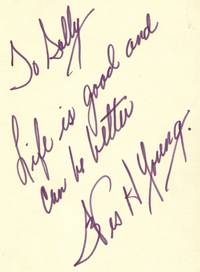 To Sally
Life is good and
can be better
Les H Young.